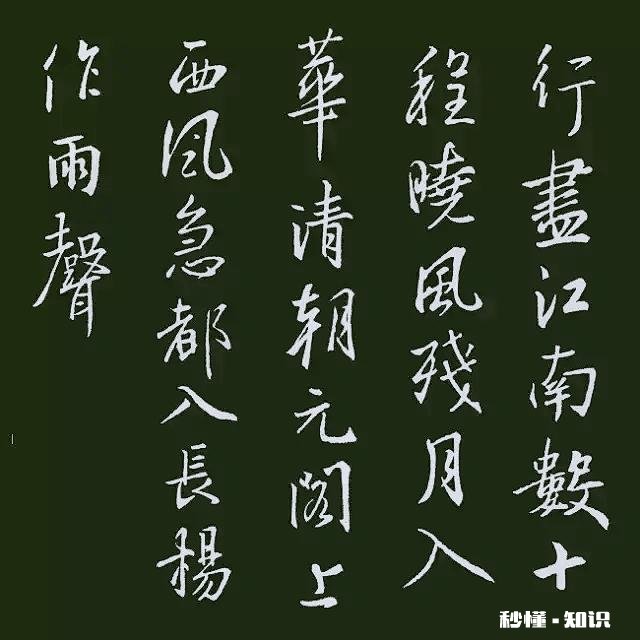 行盡江南數十
程曉風殘月入
華清朝元閣上
西风急都入長楊
作雨聲
秒懂·知识